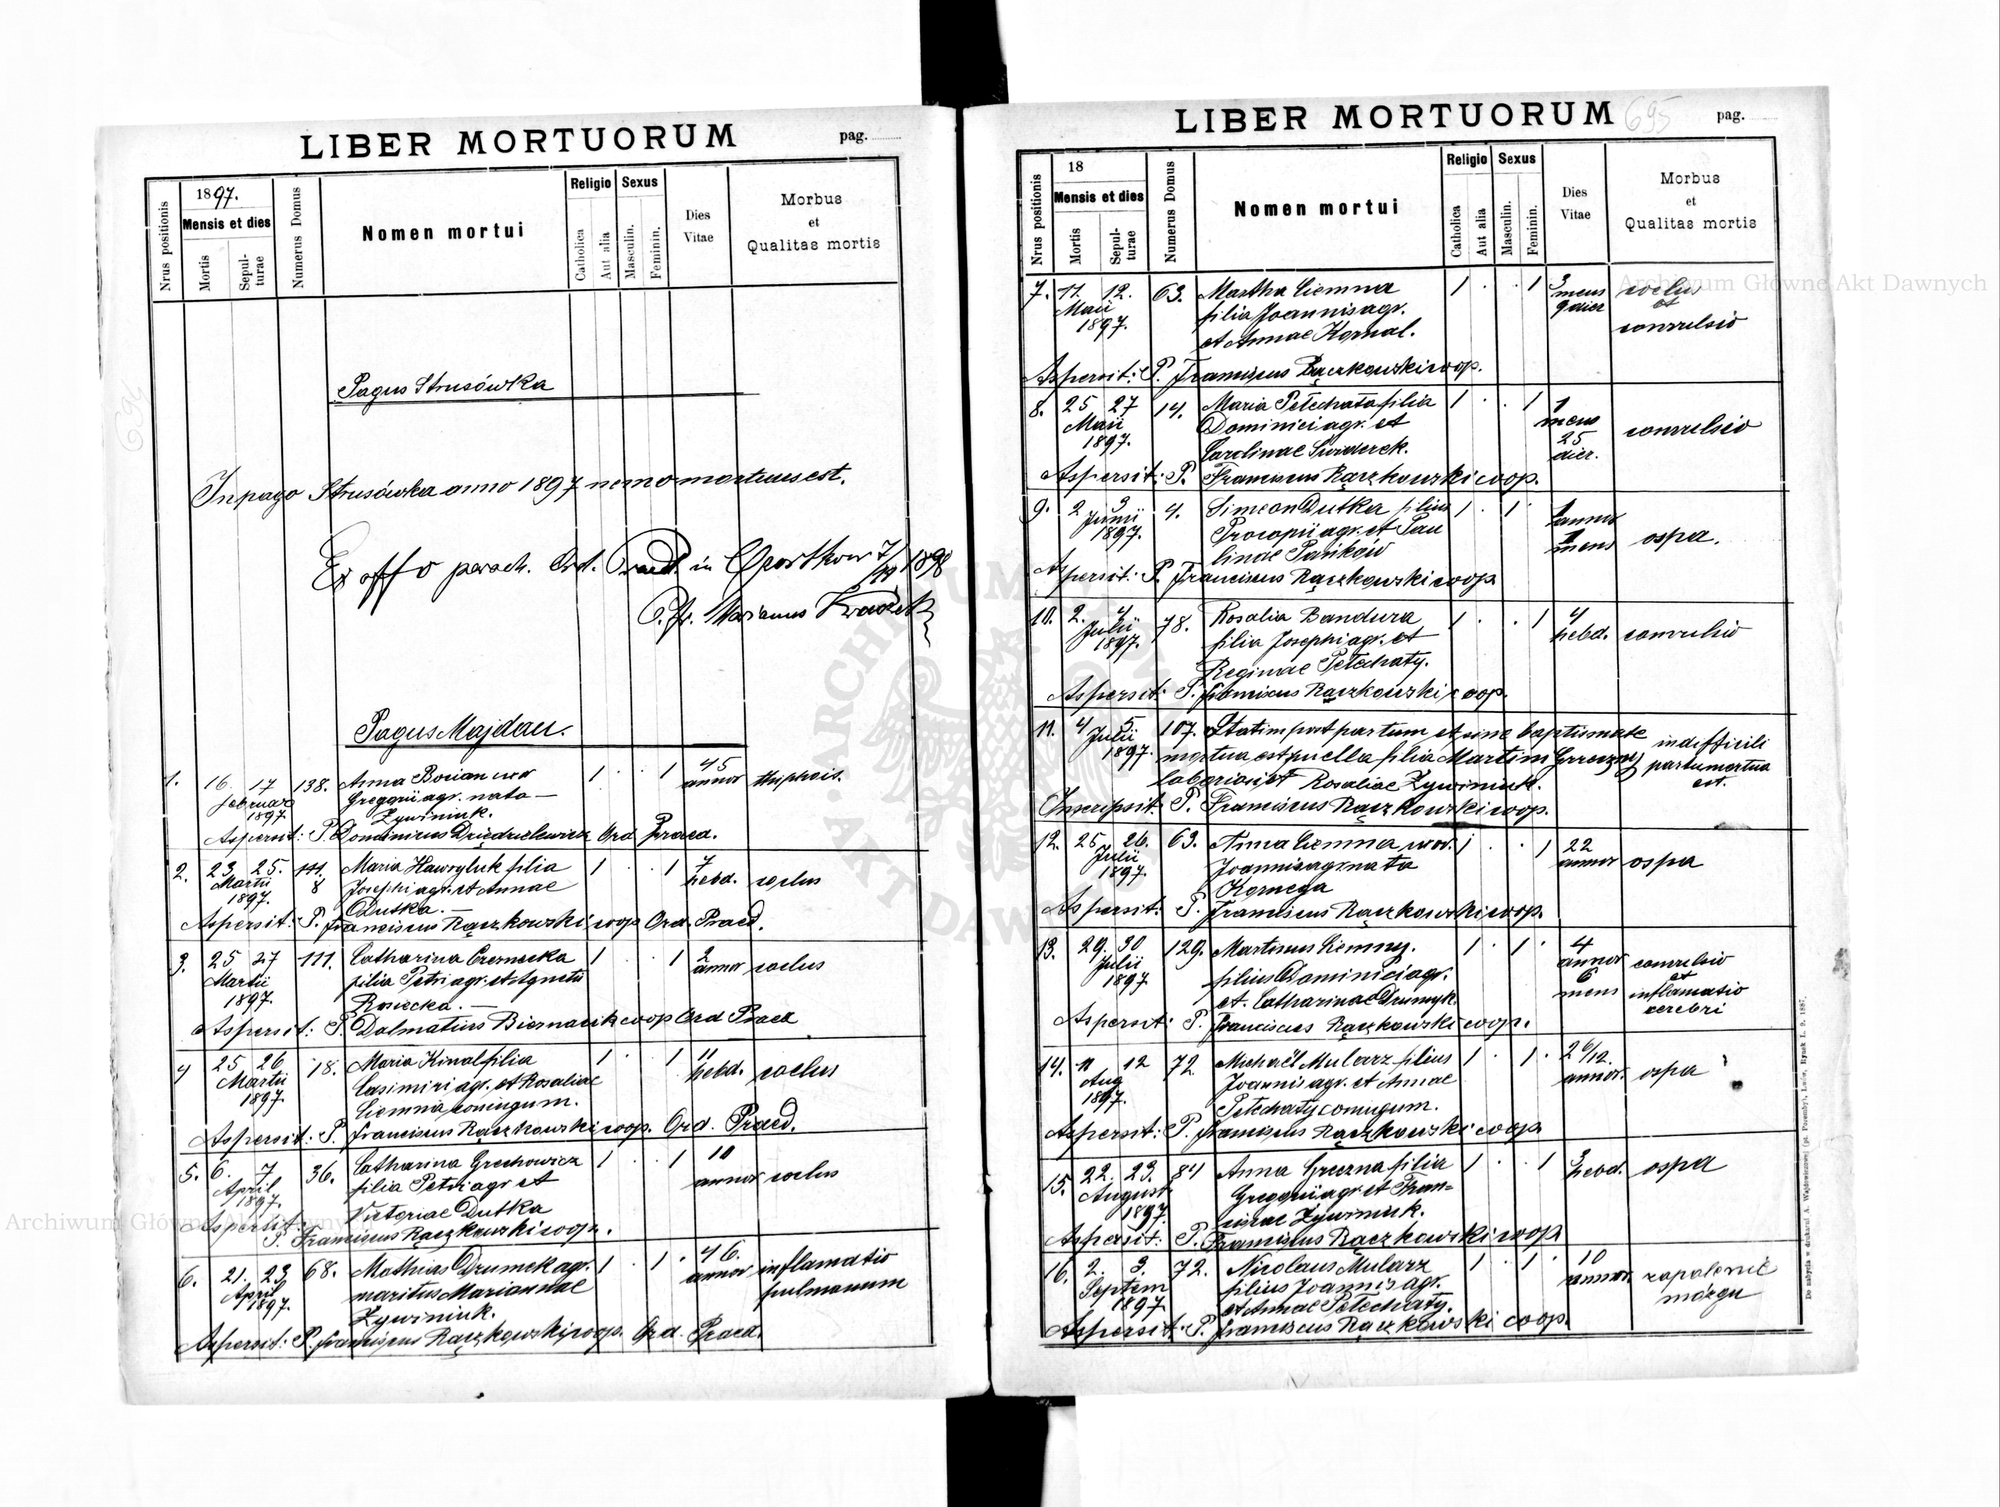 LIBER MORTUORUM
pag.
Nrus positionis
1897.
Mensis et dies
Mortis
Sepul-
turae
Numerus Domus
Nomen mortui
Religio
Catholica
Aut alia
Sexus
Masculin.
Feminin.
Dies
Vitae
Morbus
et
Qualitas mortis
Pagus Strusówka
In pago Strusówka anno 1897 nemo mortuus est.
Ex offo paroch. Ord. Praed. in Czortkow 1898
Marianus
Pagus Majdan.
1. 16 17 138. Anna Bocian uxor 1 . . 1 45
Februar Gregorii agr. nata annor
1897 Żywiniuk.
Aspersit: P. Dominicus Ord. Praed.
2. 23 25. 111. Maria Hawryluk filia 1 . . 1 7
Martii 8 Josephi agr. et Annae hebd. coclus
1897. Dutka.
Aspersit: P. Franciscus Rączkowski coop Ord. Praed.
3. 25 27 111. Catharina filia 1 . . 1 2
Martii filia Petri agr. et Agnetis annor coclus
1897. Rosiecka.
Aspersit: P. Dalmatius Biernacik coop Ord Praed
4 25 26 18. Maria Kinal filia 1 . . 1 11
Martii Casimiri agr. et Rosaliae hebd. coclus
1897. Ciemna coniugum.
Aspersit: P. Franciscus Rączkowski coop. Ord. Praed.
5. 6. 7 36. Catharina Grechowicz 1 . . 1 10
April filia Petri agr et annor coclus
1897. Victoriae Dutka
Aspersit: P. Franciscus Rączkowski coop.
6. 21. 23 68. Mathias Drumek agr. 1 . 1 . 46. inflamatio
April maritus Mariannae annor pulmonum
1897. Żywiniuk.
Aspersit: P. Franciscus Rączkowski coop. Ord. Praed.
LIBER MORTUORUM 695
pag.
Nrus positionis
18
Mensis et dies
Mortis
Sepul-
turae
Numerus Domus
Nomen mortui
Religio
Catholica
Aut alia
Sexus
Masculin.
Feminin.
Dies
Vitae
Morbus
et
Qualitas mortis
7. 11. 12. 63. Martha Ciemna 1 . . 1 3 mens coclus
Maii filia Joannis agr. 9 dier et
1897. et Annae Kornal. convulsio
Aspersit: P. Franciscus Rączkowski coop.
8. 25 27 14. Maria Petechata filia 1 . . 1 1
Maii Dominici agr. et mens convulsio
1897. Carolinae Swiderek. 25 dier.
Aspersit: P. Franciscus Rączkowski coop.
9. 2 3 4. Simeon Dutka filius 1 . 1 . 1 annor
Junii Procopii agr. et Pau 1 mens ospa.
1897. linae Pańków
Aspersit: P. Franciscus Rączkowski coop
10. 2. 4 78. Rosalia Bandura 1 . . 1 4
Julii filia Josephi agr. et hebd. convulsio
1897. Reginae Petechaty.
Aspersit: P. Franciscus Rączkowski coop.
11. 4 5 107. Statim post partum et sine baptismate in difficili
Julii mortua est puella filia Martini Grzeczny partu mortua
1897. laboriosi et Rosaliae Żywiniuk. est.
Inscripsit P. Franciscus Rączkowski coop.
12. 25 26. 63. Anna Ciemna uxor. 1 . . 1 22
Julii Joannis agr. nata annor ospa
1897. Kornega
Aspersit: P. Franciscus Rączkowski coop.
13. 29. 30 129. Martinus Ciemny. 1 . 1 . 4 convulsio
Julii filius Dominici agr. annor et
1897 et. Catharinae Drumyk. 6 mens inflamatio
cerebri
Aspersit: P. Franciscus Rączkowski coop.
14. 11 12 72 Michaël Mularz filius 1 . 1 . 2 6/12.
Aug Joannis agr. et Annae annor. ospa
1897. Petechaty coniugum.
Aspersit: P. Franciscus Rączkowski coop
15. 22. 23. 84 Anna Grzezna filia 1 . . 1 3 ospa
August Gregorii agr et Fran= hebd.
1897 ciscae Żywiniuk.
Aspersit: P. Franciscus Rączkowski coop
16. 2. 3. 72. Nicolaus Mularz 1 . 1 . 10 zapalenie
Septem filius Joannis agr. annor. mózgu
1897 et Annae Petechaty.
Aspersit: P. Franciscus Rączkowski coop.
Archiwum Główne Akt Dawnych
Archiwum Główne Akt Dawnych